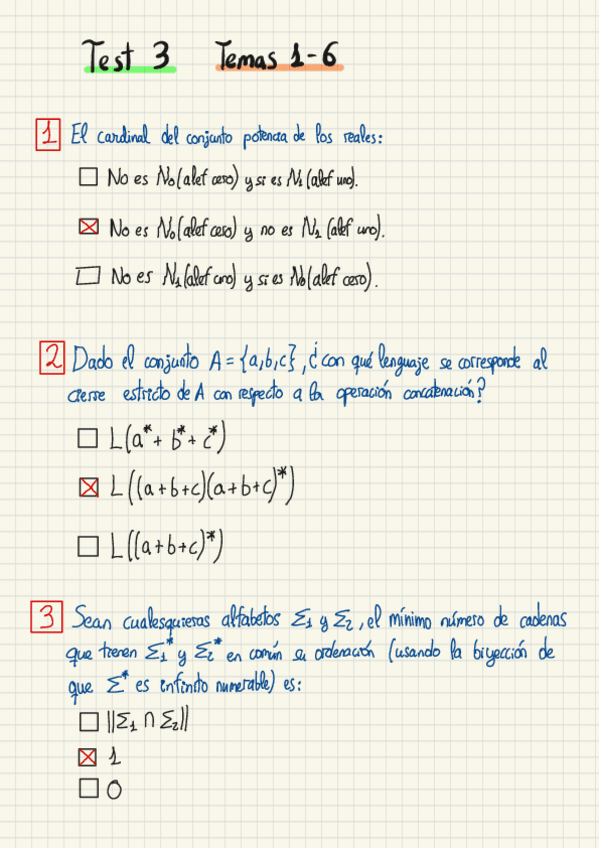 Test 3 Temas 1-6
1 El cardinal del conjunto potencia de los reales:
No es ℵ₀ (alef cero) y si es ℵ₁ (alef uno).
No es ℵ₀ (alef cero) y no es ℵ₁ (alef uno).
No es ℵ₁ (alef uno) y si es ℵ₀ (alef cero).
2 Dado el conjunto A = {a,b,c}, ¿con qué lenguaje se corresponde al
cierre estricto de A con respecto a la operación concatenación?
L(a* + b* + c*)
L((a+b+c)(a+b+c)*)
L((a+b+c)*)
3 Sean cualesquieras alfabetos Σ₁ y Σ₂, el mínimo número de cadenas
que tienen Σ₁* y Σ₂* en común su ordenación (usando la biyección de
que Σ* es infinito numerable) es:
||Σ₁ ∩ Σ₂||
1
0